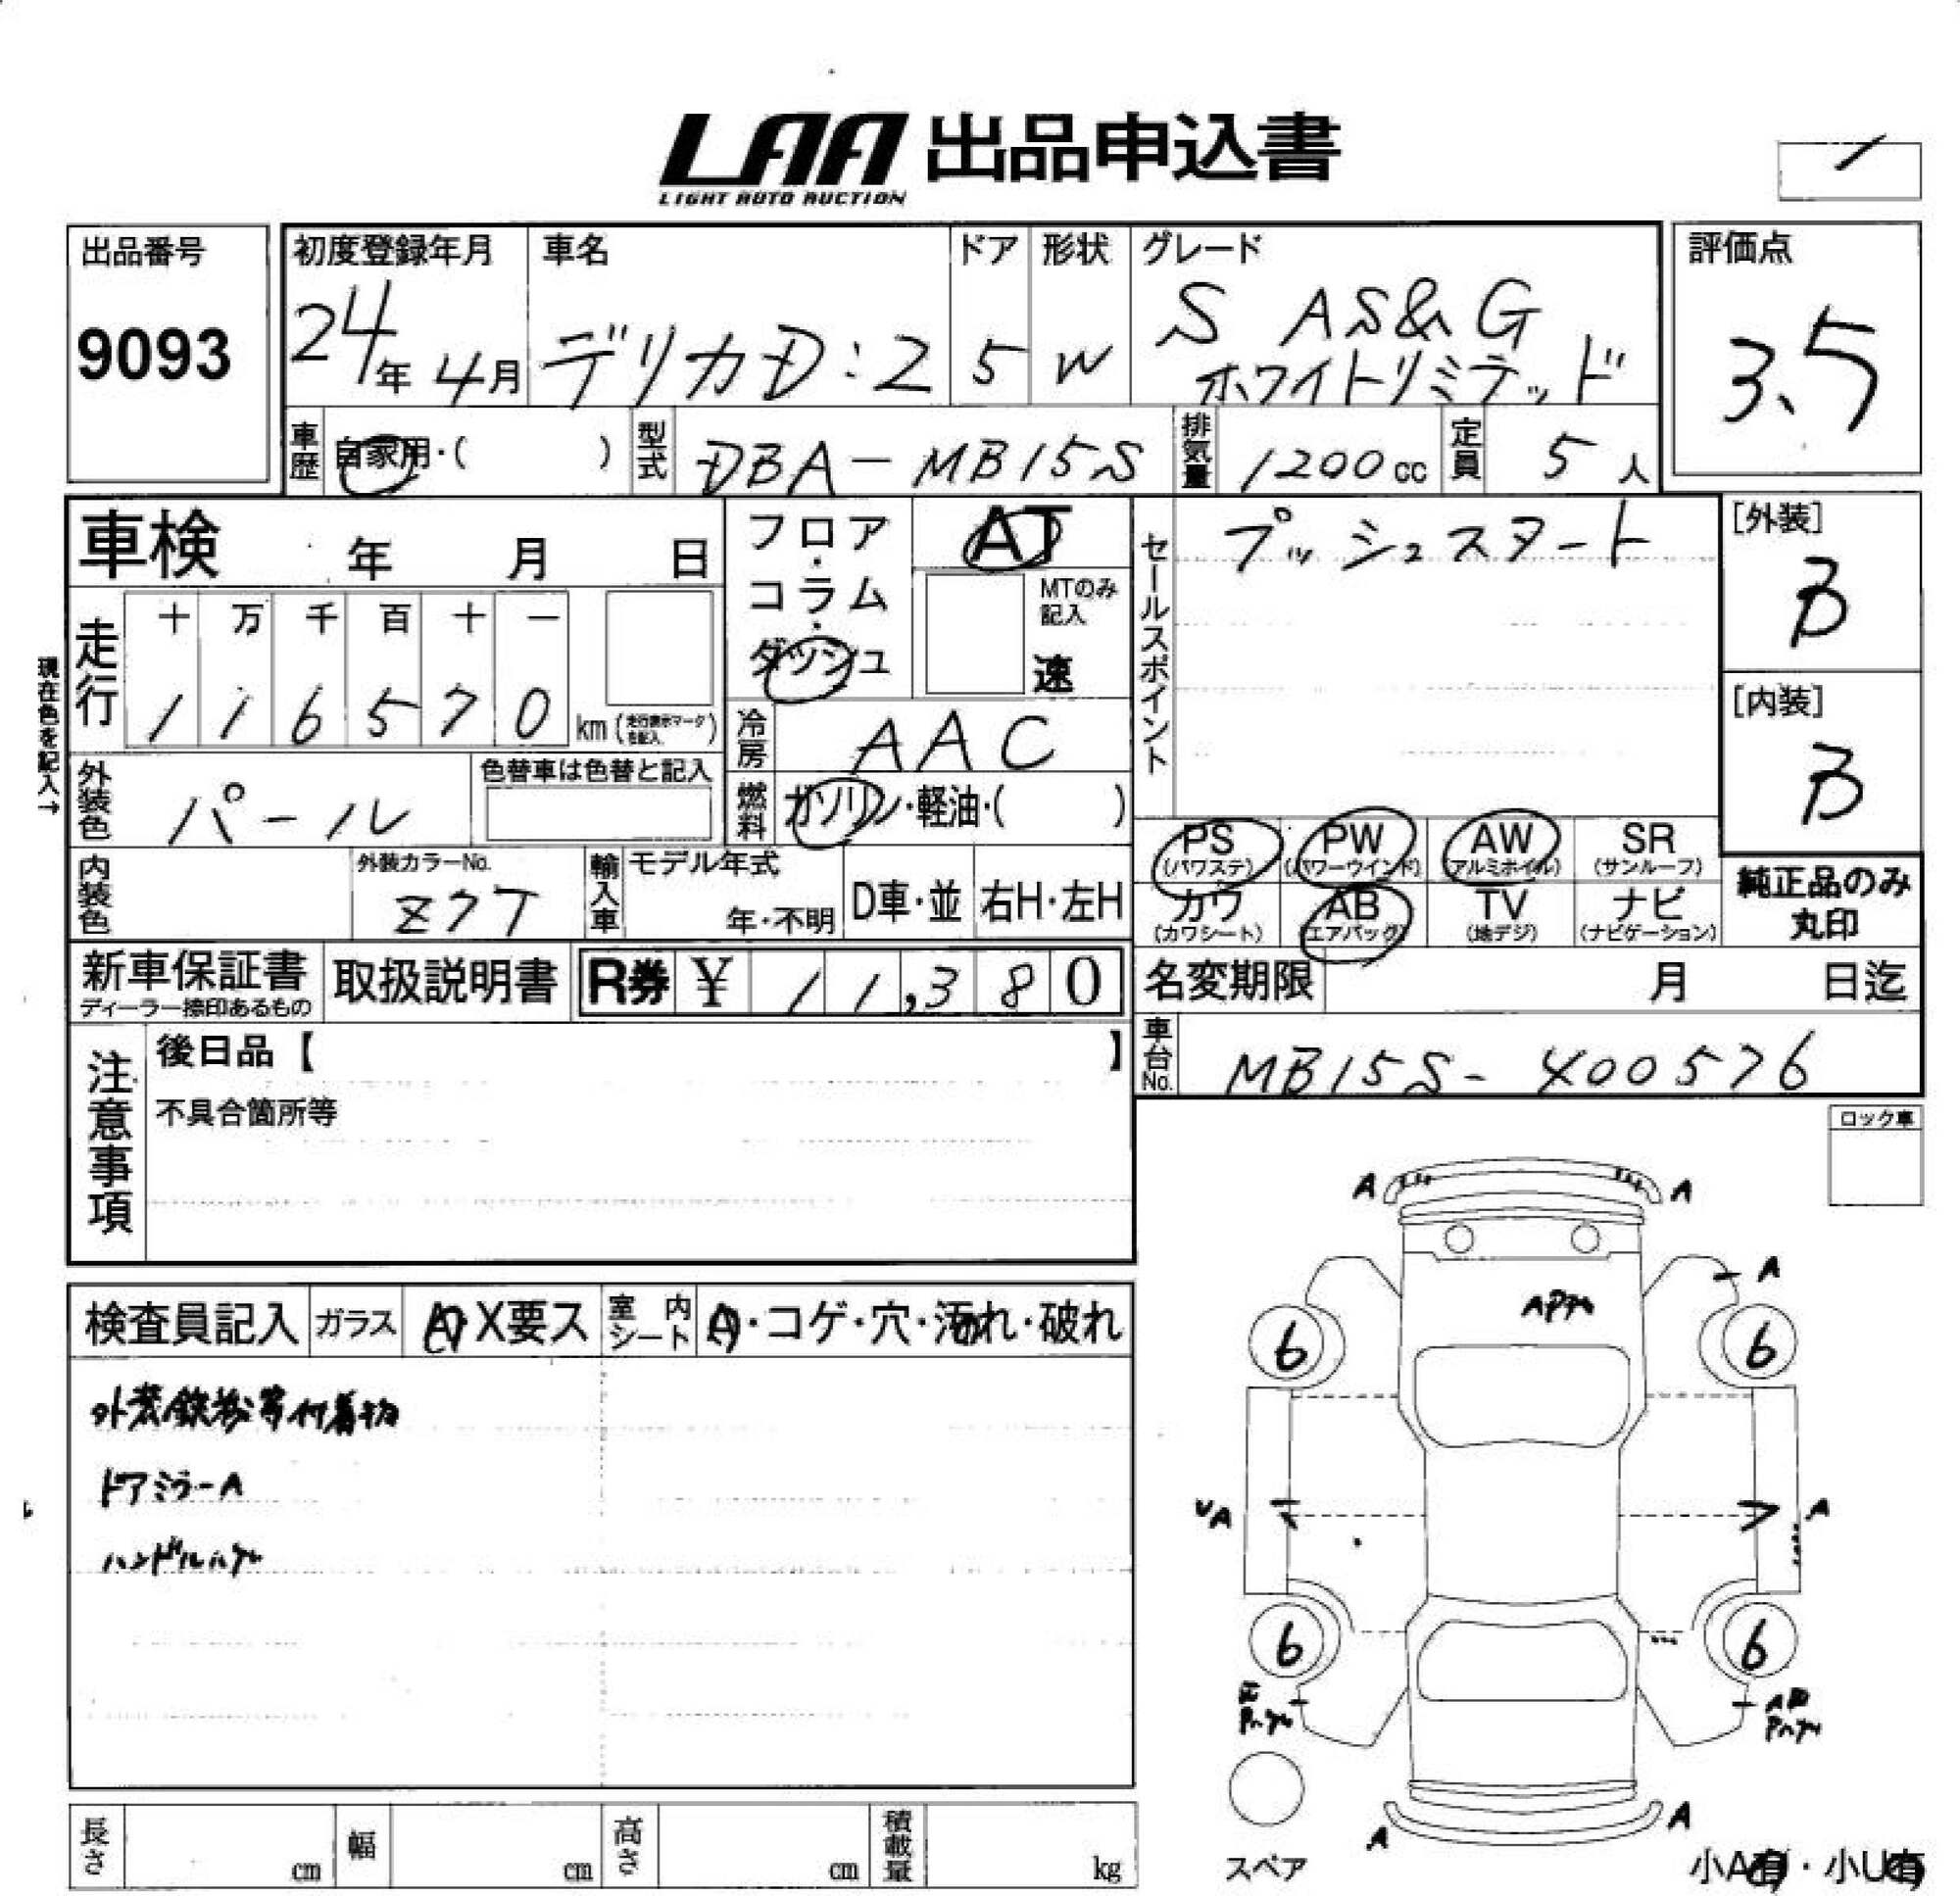 LAA 出品申込書
LIGHT AUTO AUCTION
出品番号
9093
初度登録年月
24年 4月
車名
デリカD:2
ドア
5
形状
W
グレード
S AS&G
ホワイトリミテッド
評価点
3.5
車歴 自家用・( )
型式 DBA-MB15S
排気量 1200cc
定員 5人
車検 年 月 日
フロア・コラム・ダッシュ
AT
MTのみ記入
速
セールスポイント
プッシュスタート
[外装]
B
[内装]
B
現在色を記入→
走行
十 万 千 百 十 一
1 1 6 5 7 0 km (走行表示マークを記入)
冷房 AAC
外装色 パール
色替車は色替と記入
燃料 ガソリン・軽油・( )
PS (パワステ)
PW (パワーウインド)
AW (アルミホイル)
SR (サンルーフ)
カワ (カワシート)
AB (エアバッグ)
TV (地デジ)
ナビ (ナビゲーション)
純正品のみ
丸印
内装色
外装カラーNo.
Z7T
輸入車
モデル年式
年・不明
D車・並
右H・左H
新車保証書
ディーラー捺印あるもの
取扱説明書
R券 ¥ 11,380
名変期限 月 日迄
車台No. MB15S-400576
注意事項
後日品【 】
不具合箇所等
ロック車
検査員記入
ガラス
A・X要ス
室内シート
A・コゲ・穴・汚れ・破れ
外装鉄粉等付着物
ドアミラーA
ハンドルハゲ
A
A
A
6
6
UA
A
6
6
A
A
スペア
小A有・小U有
長さ cm
幅 cm
高さ cm
積載量 kg